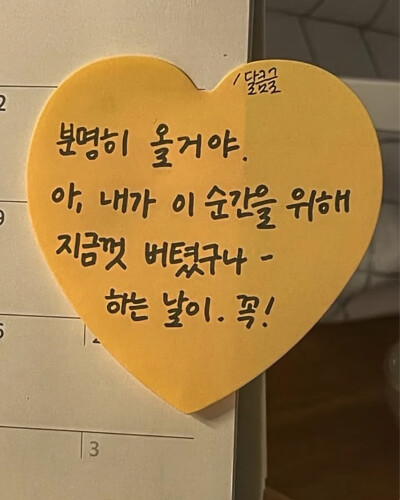 /달콤글
분명히 올거야.
아, 내가 이 순간을 위해
지금껏 버텼구나 -
하는 날이. 꼭!
2
9
3